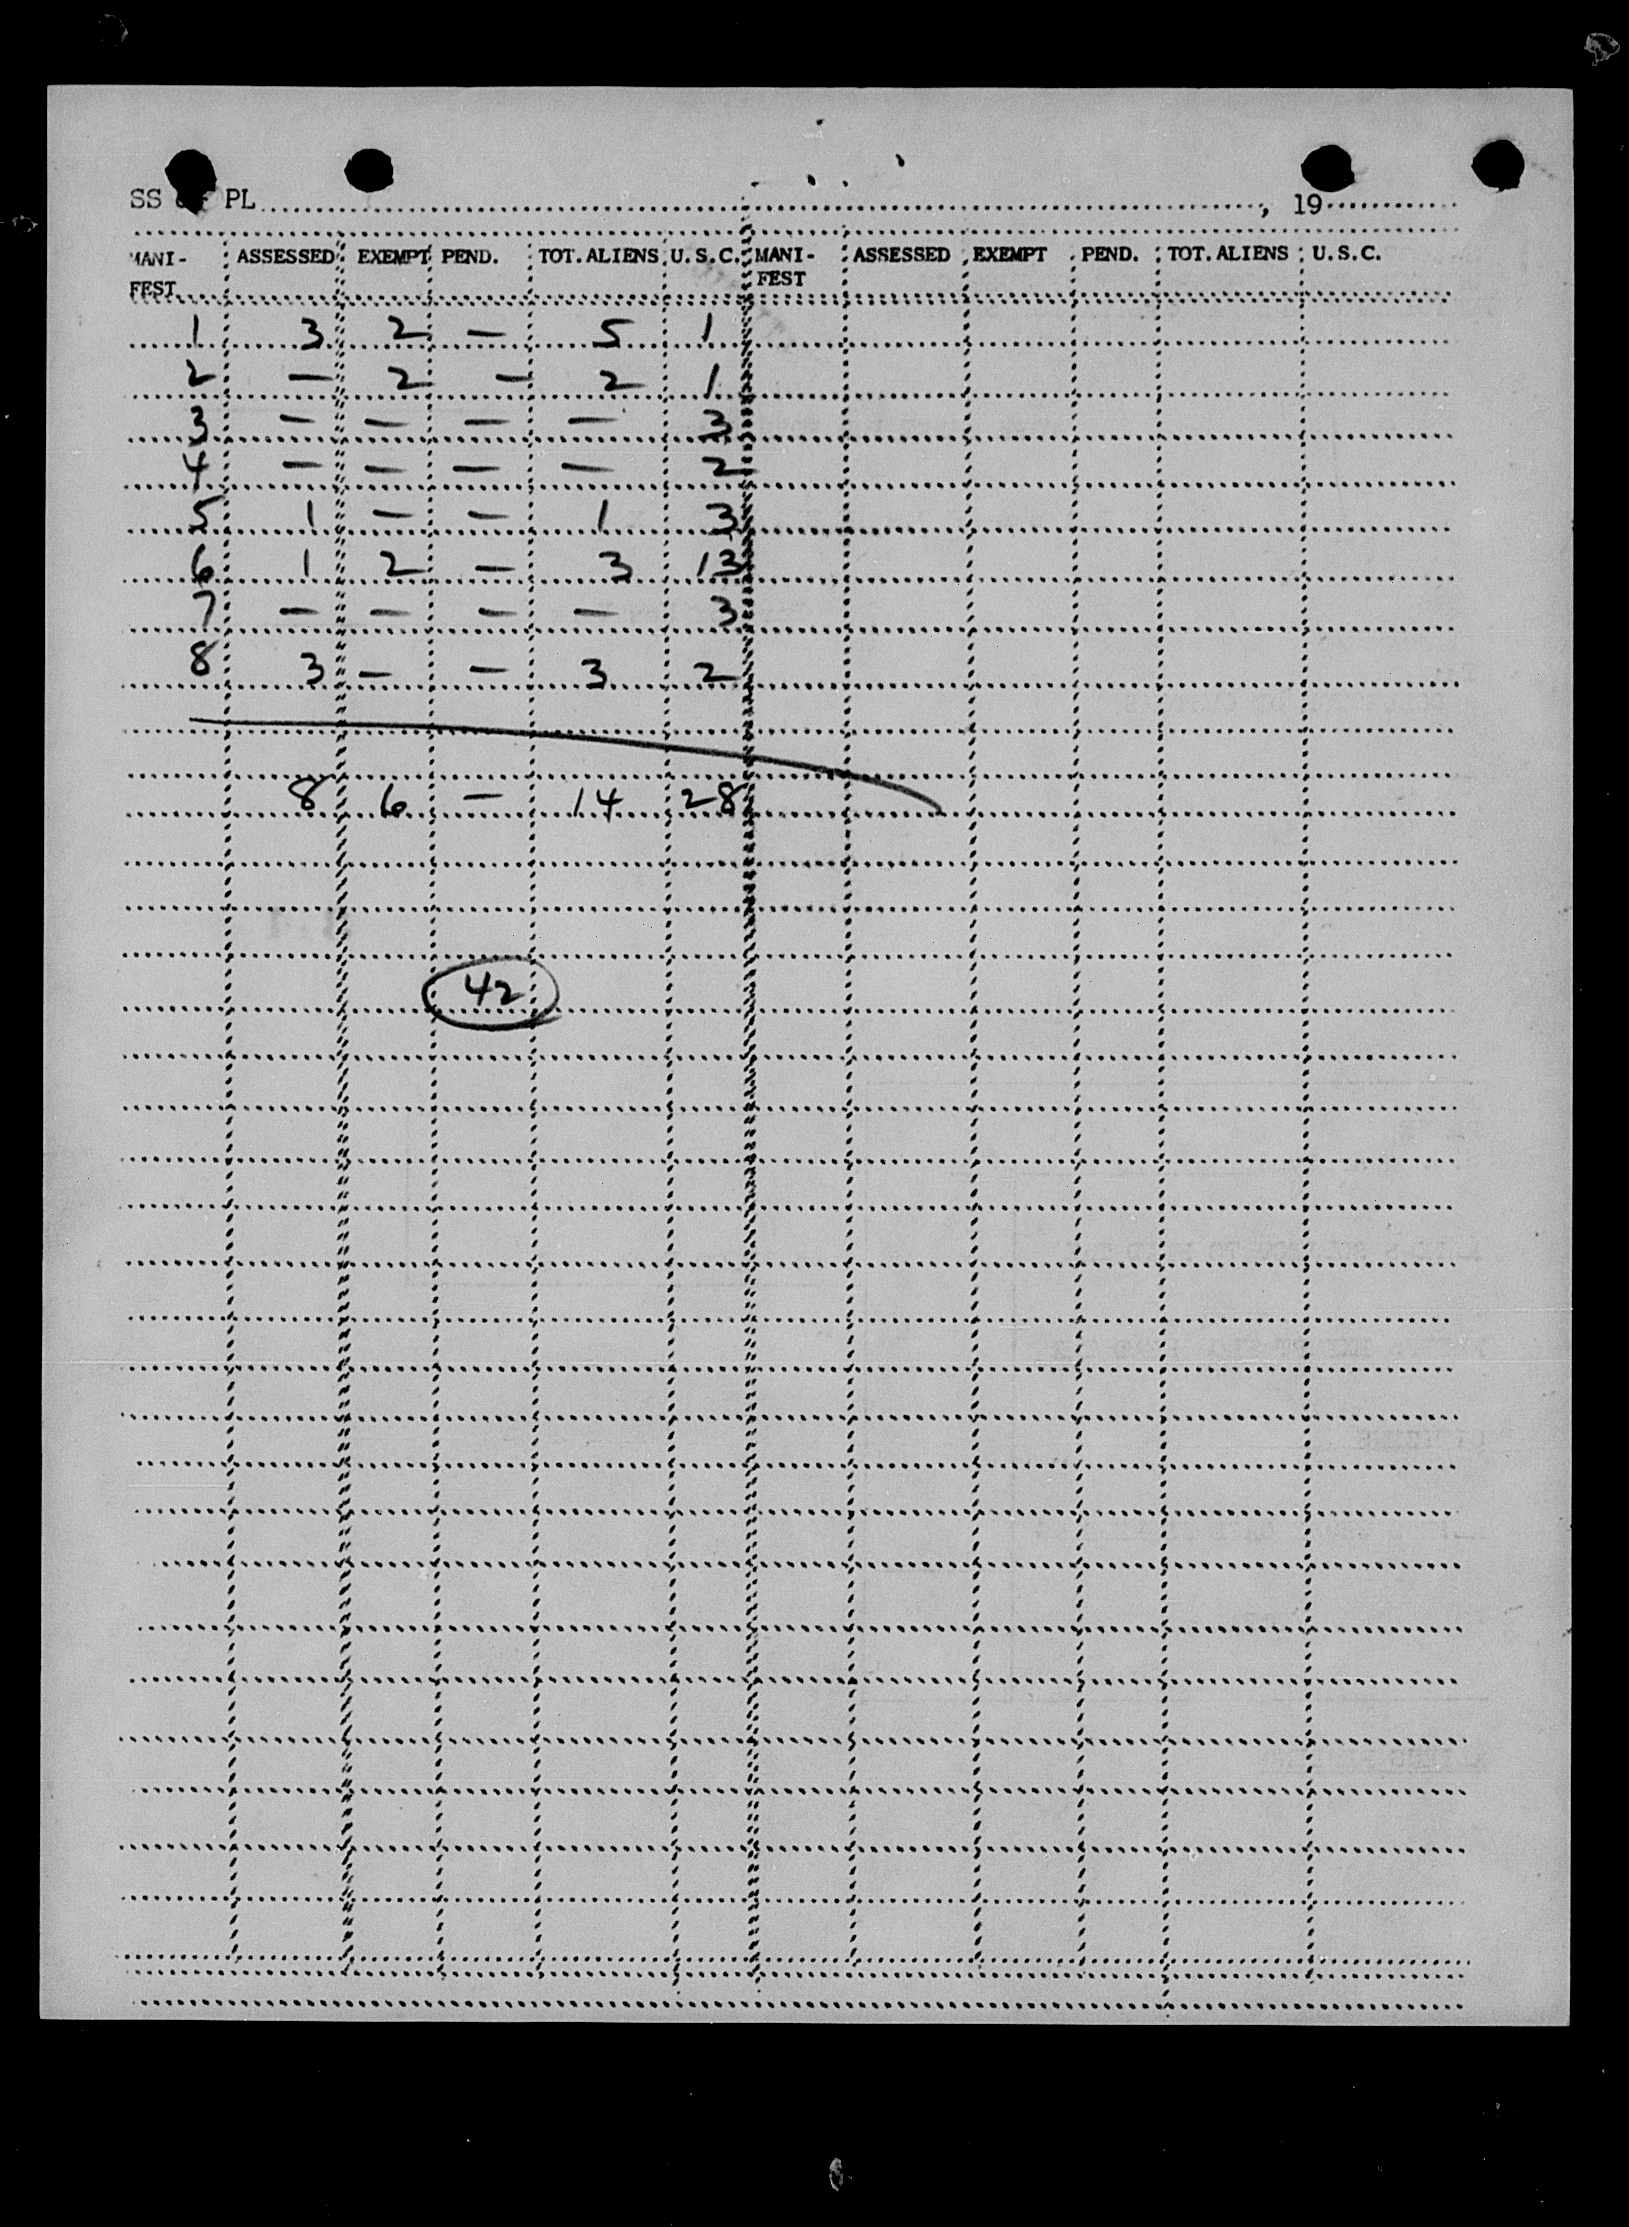 SS or PL, 19
MANI- ASSESSED EXEMPT PEND. TOT. ALIENS U.S.C. MANI- ASSESSED EXEMPT PEND. TOT. ALIENS U.S.C.
FEST FEST
1 3 2 — 5 1
2 — 2 — 2 1
3 — — — — 3
4 — — — — 2
5 1 — — 1 3
6 1 2 — 3 13
7 — — — — 3
8 3 — — 3 2
8 6 — 14 28
42